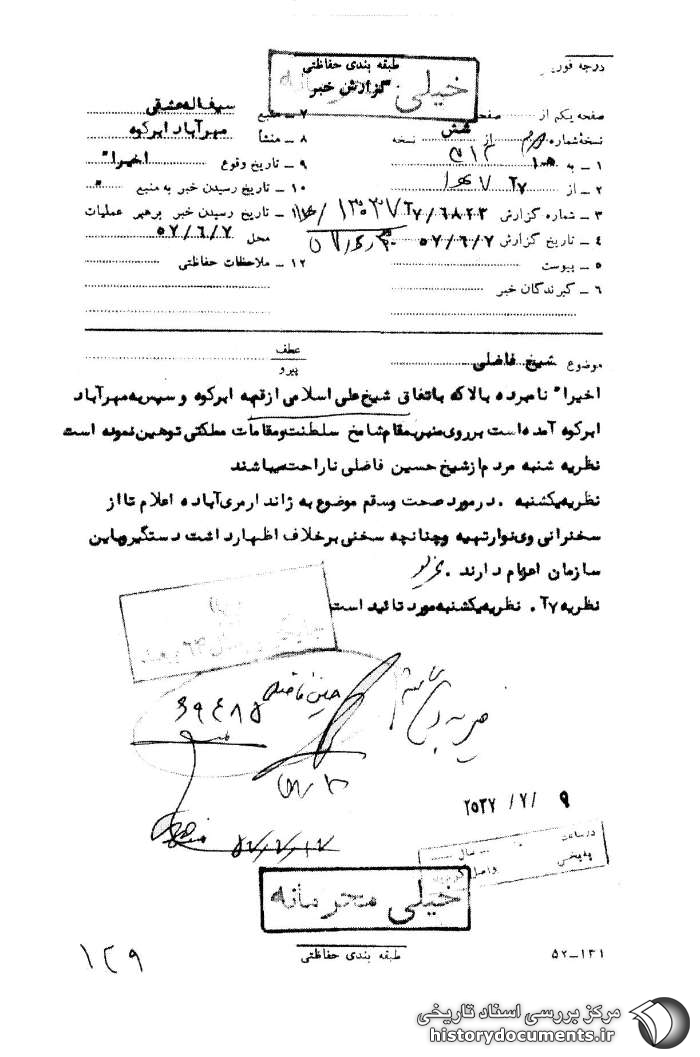 درجه فوریت
طبقه بندی حفاظتی
خیلی محرمانه
گزارش خبر
صفحه یکم از صفحه
نسخه شماره از شش نسخه
۱ ـ به ۳۱۲
۲ ـ از ۷
۳ ـ شماره گزارش ۶۸۲۳/
۴ ـ تاریخ گزارش ۵۷/۶/۷
۵ ـ پیوست
۶ ـ گیرندگان خبر
۷ ـ منبع سیف‌اله عشقی
۸ ـ منشأ مهرآباد ابرکوه
۹ ـ تاریخ وقوع اخیرا"
۱۰ ـ تاریخ رسیدن خبر به منبع "
۱۱ ـ تاریخ رسیدن خبر برهبر عملیات
محل ۵۷/۶/۷
۱۲ ـ ملاحظات حفاظتی
موضوع شیخ فاضلی
عطف
پیرو
اخیرا" نامبرده بالا که باتفاق شیخ علی اسلامی از قم به ابرکوه و سپس به مهرآباد
ابرکوه آمده است بر روی منبر بمقام شامخ سلطنت و مقامات مملکتی توهین نموده است
نظریه شنبه مردم از شیخ حسین فاضلی ناراحت میباشند
نظریه یکشنبه . در مورد صحت و سقم موضوع به ژاندارمری آباده اعلام تا از
سخنرانی وی نوار تهیه و چنانچه سخنی برخلاف اظهار داشت دستگیر و باین
سازمان اعزام دارند .
نظریه ۷آ . نظریه یکشنبه مورد تائید است
حسین فاضلی
۳۹۴۸۵
۲۵۳۷ /۷/ ۹
در ساعت
سال
بایگانی
خیلی محرمانه
طبقه بندی حفاظتی
۱۳۱ـ۵۲
۱۲۹
مرکز بررسی اسناد تاریخی
historydocuments.ir